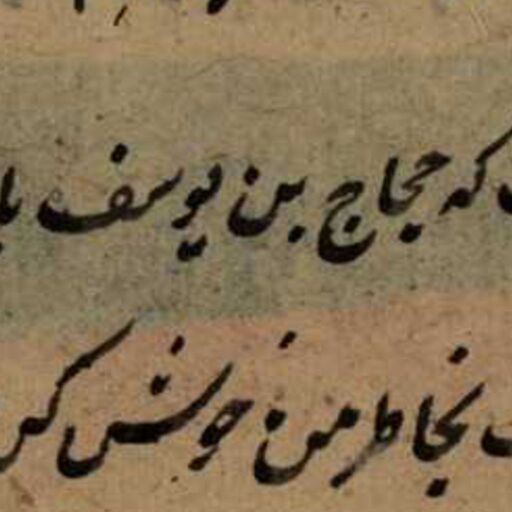 که حجاج بن یوسف با
بخاطر من خوش کر